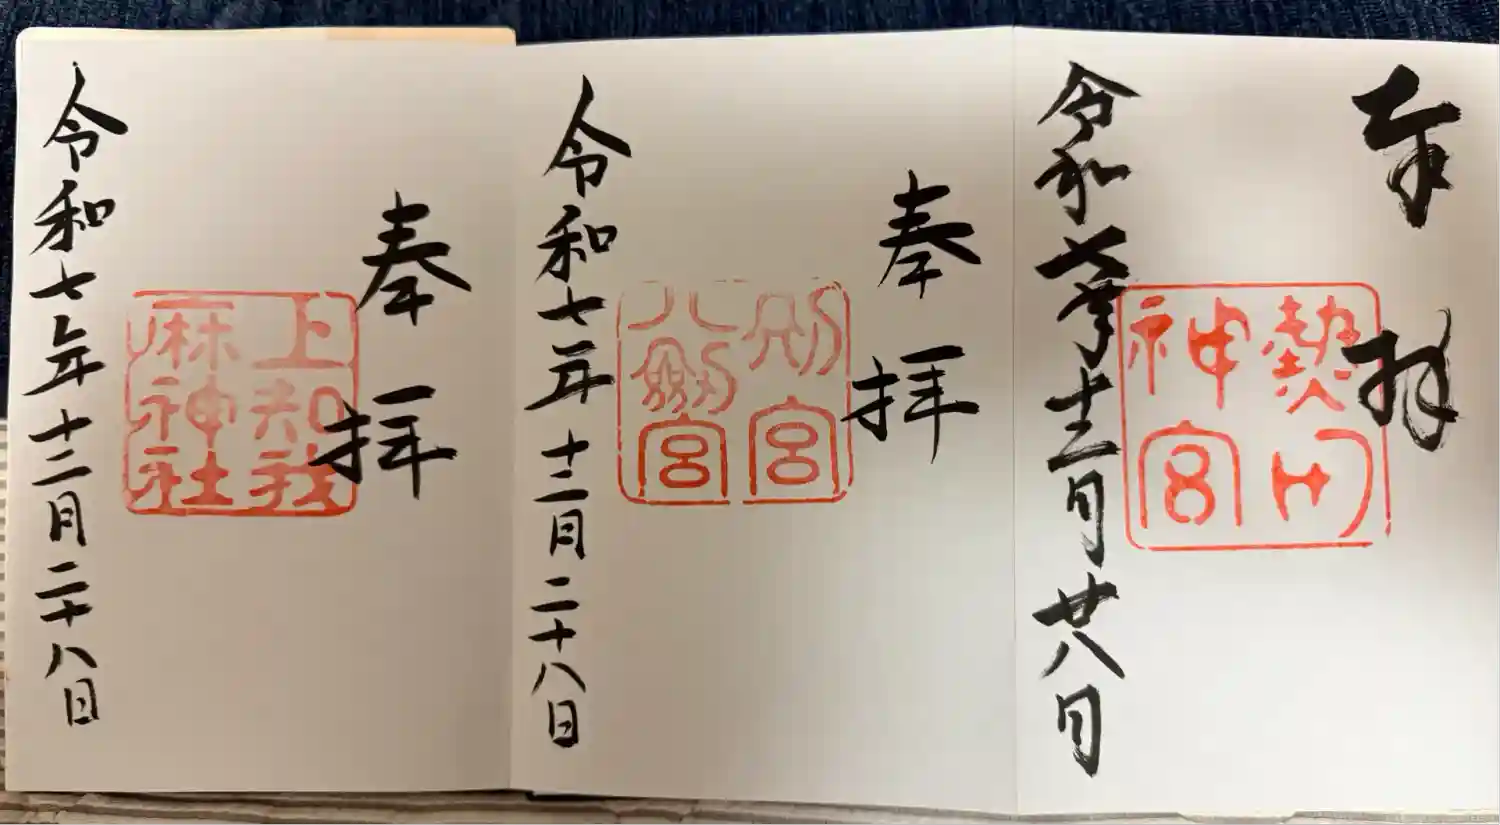 奉拝
熱田
神宮
令和七年十二月廿八日
奉拝
別宮
八劔宮
令和七年十二月二十八日
奉拝
上知我
麻神社
令和七年十二月二十八日